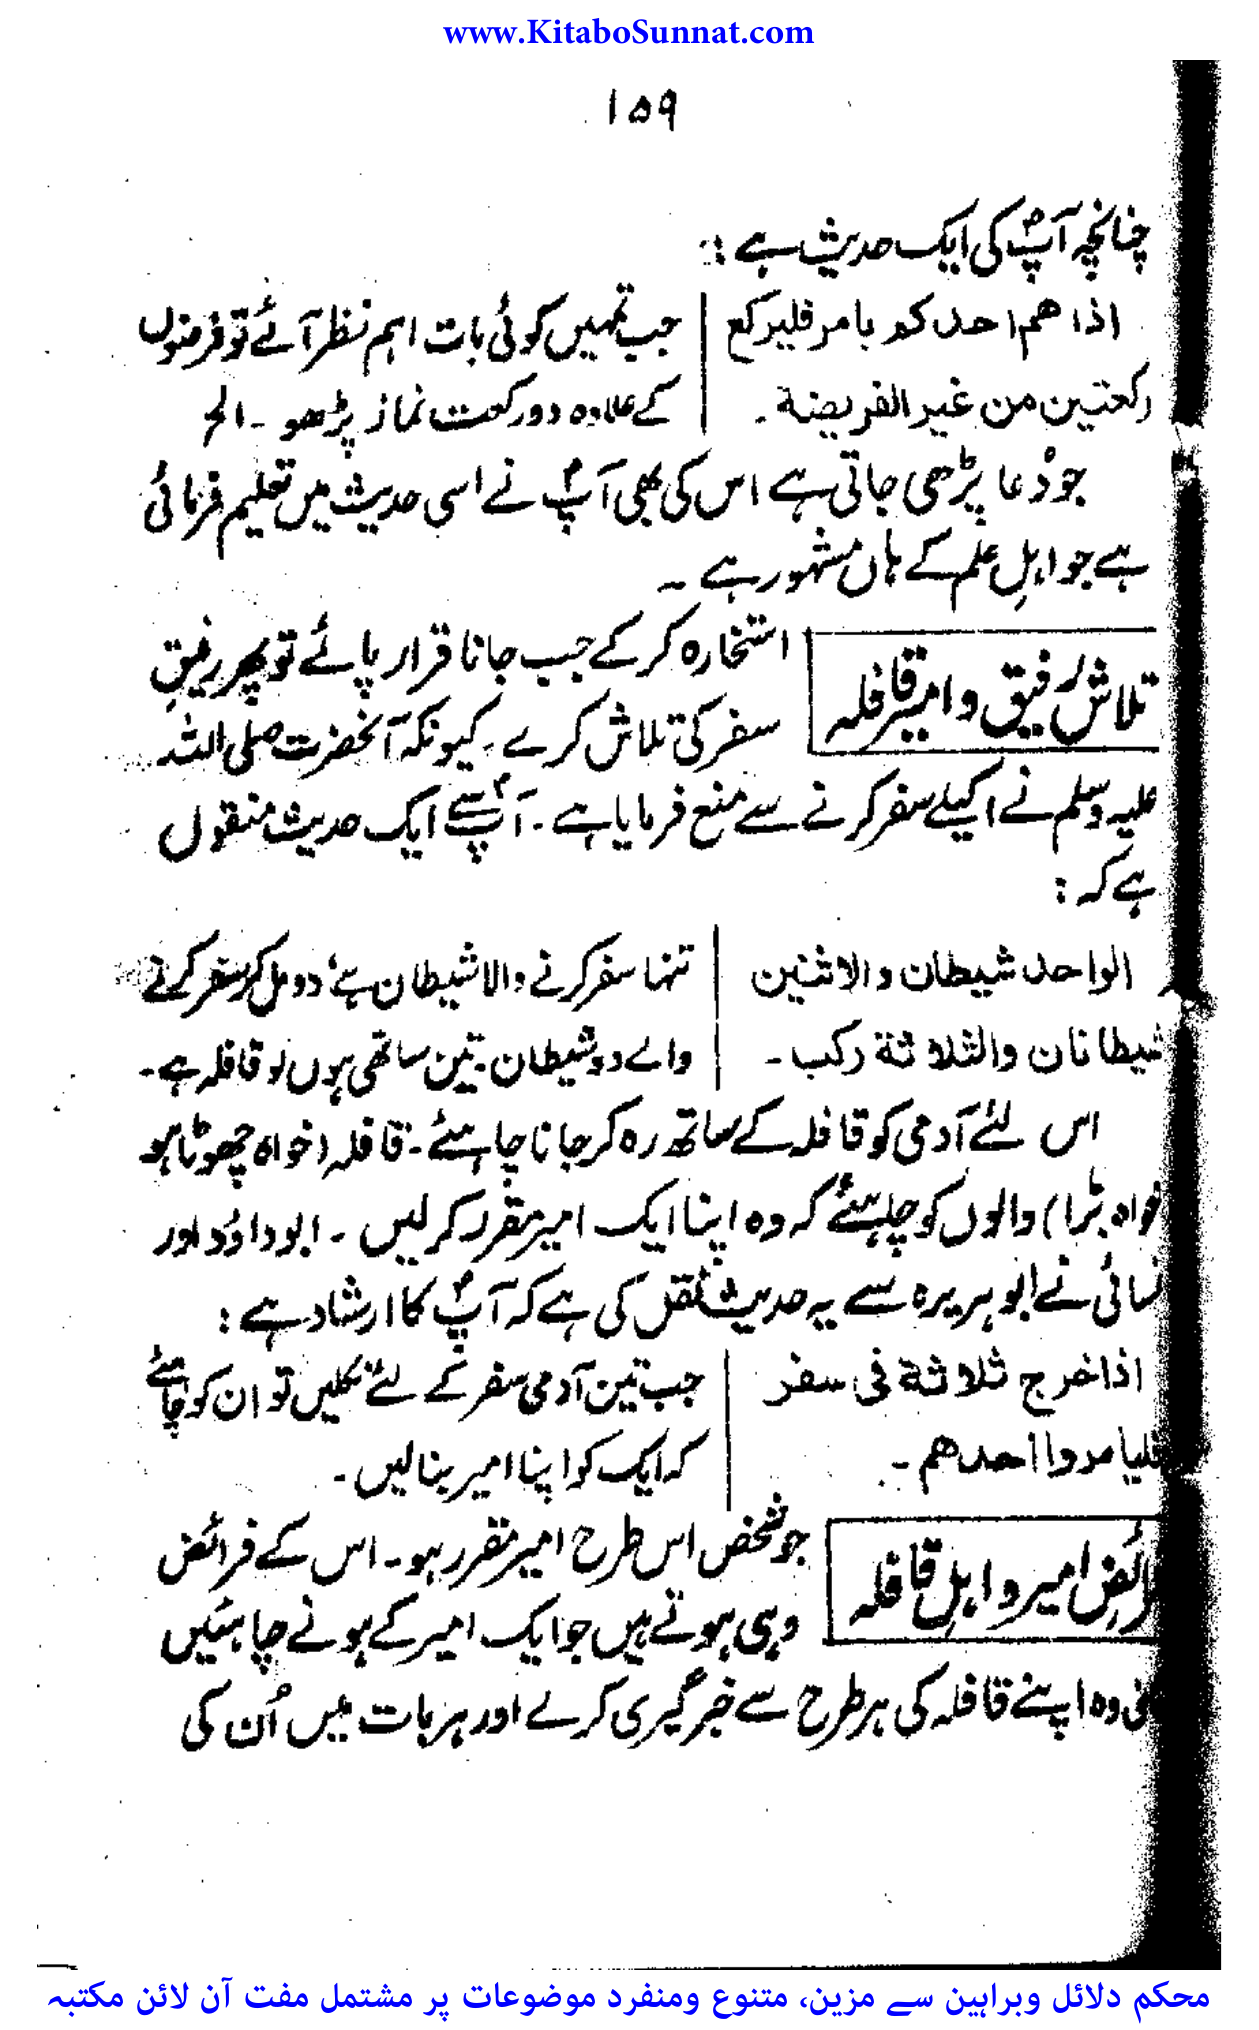 www.KitaboSunnat.com
۱۵۹
چنانچہ آپؐ کی ایک حدیث ہے :
اذا هم احدكم بامر فليركع
ركعتين من غير الفريضة ۔
جب تمہیں کوئی بات اہم نظر آئے تو فرضوں
کے علاوہ دو رکعت نماز پڑھو ۔ الخ
جو دُعا پڑھی جاتی ہے اس کی بھی آپؐ نے اسی حدیث میں تعلیم فرمائی
ہے جو اہلِ علم کے ہاں مشہور ہے ۔
تلاش رفیق و امیر قافلہ
استخارہ کر کے جب جانا قرار پائے تو پھر رفیقِ
سفر کی تلاش کرے ۔ کیونکہ آنحضرت صلی اللہ
علیہ وسلم نے اکیلے سفر کرنے سے منع فرمایا ہے ۔ آپؐ سے ایک حدیث منقول
ہے کہ :
الواحد شيطان والاثنين
شيطانان والثلاثة ركب ۔
تنہا سفر کرنے والا شیطان ہے، دو مل کر سفر کرنے
والے دو شیطان ۔ تین ساتھی ہوں تو قافلہ ہے ۔
اس لئے آدمی کو قافلہ کے ساتھ رہ کر جانا چاہئے ۔ قافلہ (خواہ چھوٹا ہو
خواہ بڑا) والوں کو چاہئے کہ وہ اپنا ایک امیر مقرر کر لیں ۔ ابو داؤد اور
نسائی نے ابو ہریرہ سے یہ حدیث نقل کی ہے کہ آپؐ کا ارشاد ہے :
اذا خرج ثلاثة فى سفر
فليامروا احدهم ۔
جب تین آدمی سفر کے لئے نکلیں تو ان کو چاہئے
کہ ایک کو اپنا امیر بنا لیں ۔
فرائض امیر و اہلِ قافلہ
جو شخص اس طرح امیر مقرر ہو ۔ اس کے فرائض
وہی ہوتے ہیں جو ایک امیر کے ہونے چاہئیں
وہ اپنے قافلہ کی ہر طرح سے خبر گیری کرے اور ہر بات میں اُن کی
محکم دلائل وبراہین سے مزین، متنوع ومنفرد موضوعات پر مشتمل مفت آن لائن مکتبہ